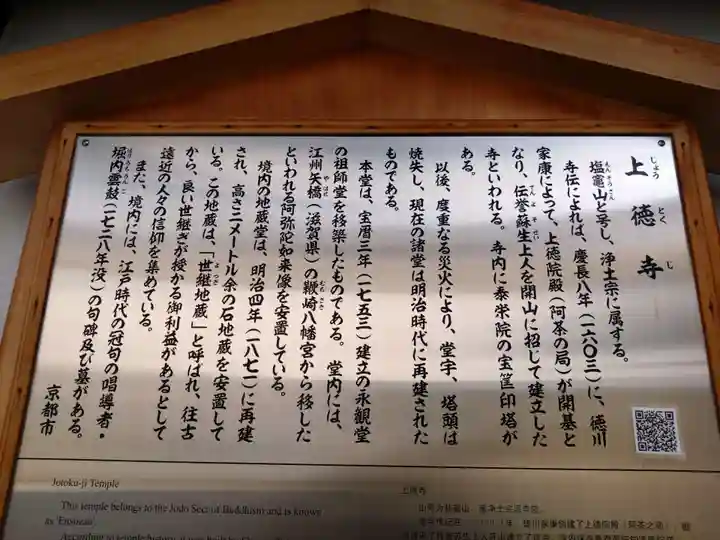 上徳寺
じょうとくじ
塩竈山と号し、浄土宗に属する。
寺伝によれば、慶長八年(一六〇三)に、徳川
家康によって、上徳院殿(阿茶の局)が開基と
なり、伝誉蘇生上人を開山に招じて建立した
寺といわれる。寺内に泰栄院の宝筐印塔が
ある。
以後、度重なる災火により、堂宇、塔頭は
焼失し、現在の諸堂は明治時代に再建された
ものである。
本堂は、宝暦三年(一七五三)建立の永観堂
の祖師堂を移築したものである。堂内には、
江州矢橋(滋賀県)の鞭崎八幡宮から移した
といわれる阿弥陀如来像を安置している。
境内の地蔵堂は、明治四年(一八七一)に再建
され、高さ二メートル余の石地蔵を安置して
いる。この地蔵は、「世継地蔵」と呼ばれ、往古
から、良い世継ぎが授かる御利益があるとして
遠近の人々の信仰を集めている。
また、境内には、江戸時代の冠句の唱導者・
堀内雲鼓(一七二八年没)の句碑及び墓がある。
京都市
Jotoku-ji Temple
This temple belongs to the Jodo Sect of Buddhism and is known
as
上徳寺